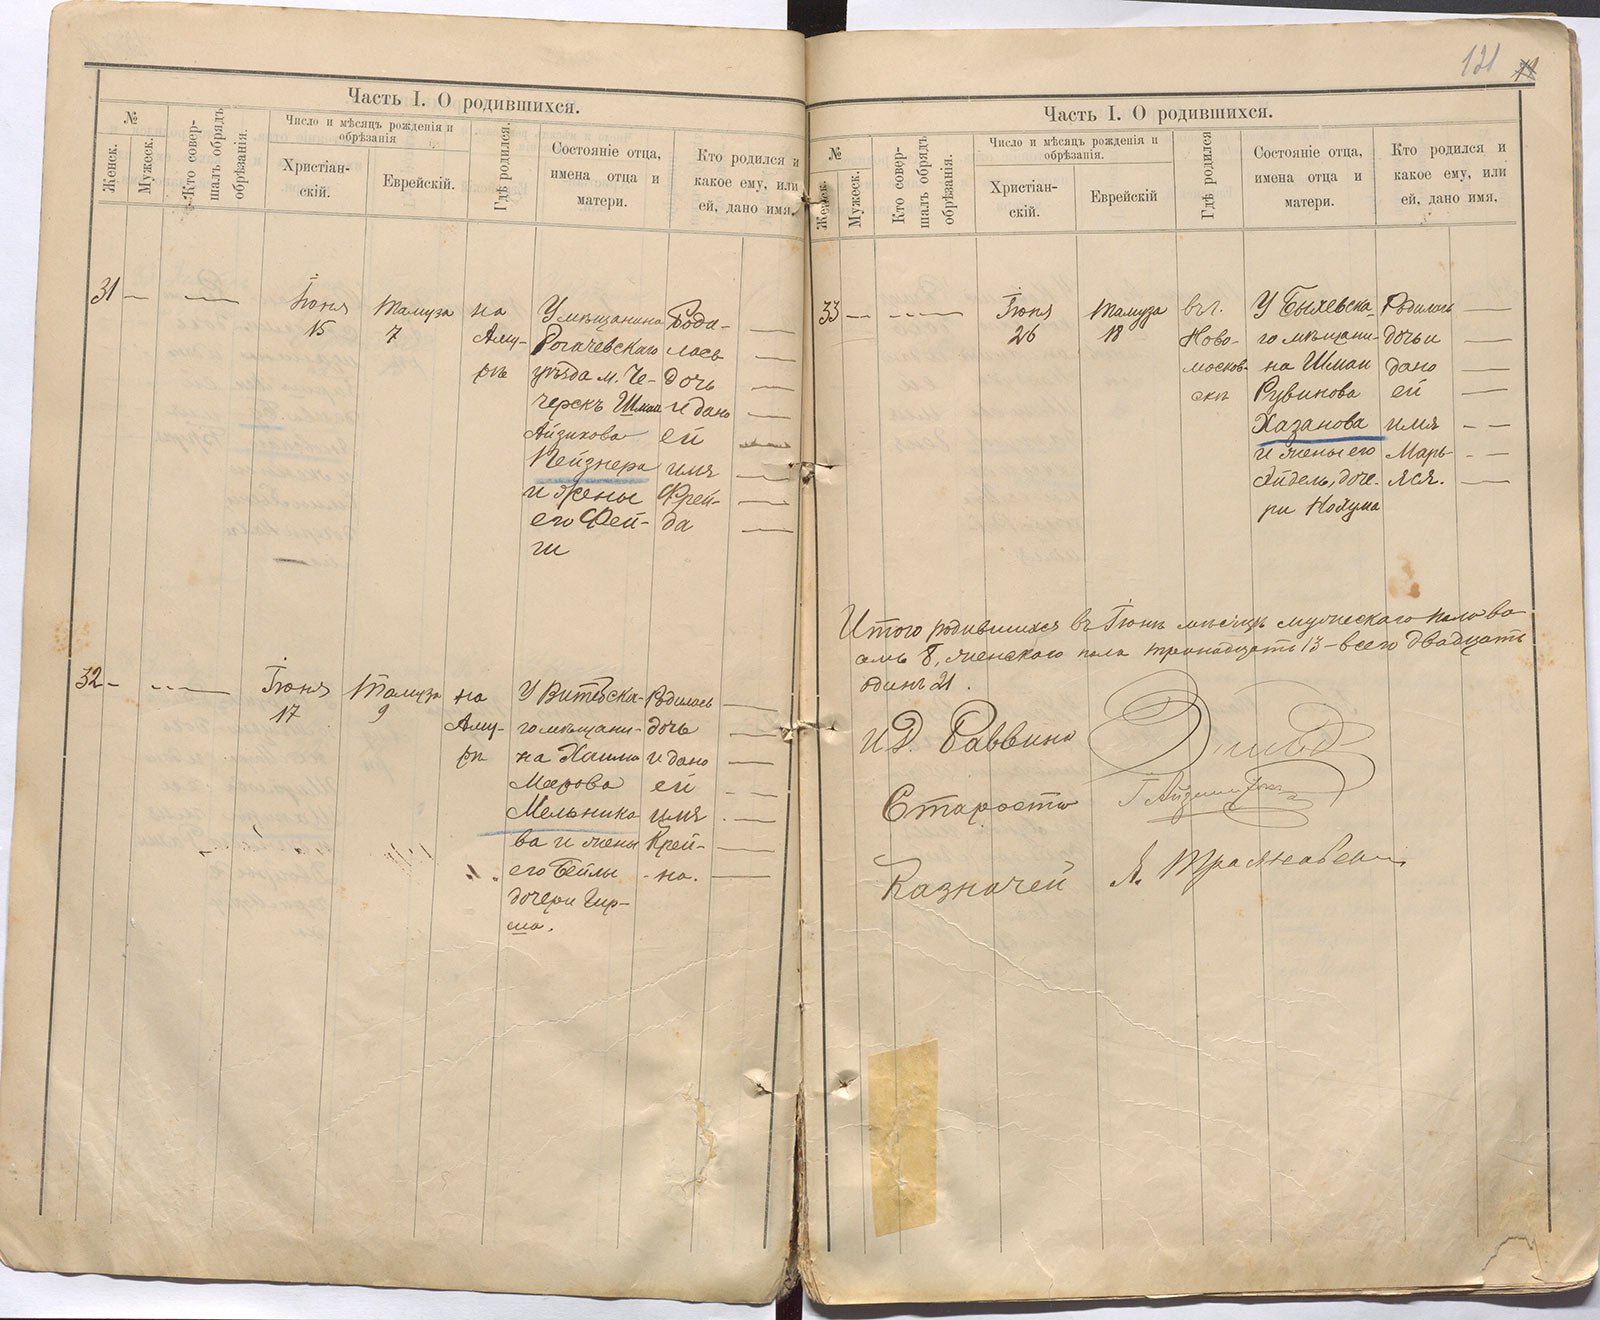 Часть I. О родившихся.
№
Женск.
Мужеск.
Кто совер-
шалъ обрядъ
обрѣзанія.
Число и мѣсяцъ рожденія и
обрѣзанія
Христіан-
скій.
Еврейскій.
Гдѣ родился.
Состояніе отца,
имена отца и
матери.
Кто родился и
какое ему, или
ей, дано имя.
31
Іюня
15
Тамуза
7
на
Аму-
рѣ
У мѣщанина
Рогачевскаго
уѣзда м. Че-
черскъ Шмаи
Айзикова
Пейзнера
и жены
его Фей-
ги
Роди-
лась
дочь
и дано
ей
имя
Фрей-
да
32
Іюня
17
Тамуза
9
на
Аму-
рѣ
У Витебска-
го мѣщани-
на Хаима
Меерова
Мельнико
ва и жены
его Бейлы
дочери Гир-
ша.
Родилась
дочь
и дано
ей
имя
Крей-
на.
121
11
Часть I. О родившихся.
№
Женск.
Мужеск.
Кто совер-
шалъ обрядъ
обрѣзанія.
Число и мѣсяцъ рожденія и
обрѣзанія.
Христіан-
скій.
Еврейскій
Гдѣ родился
Состояніе отца,
имена отца и
матери.
Кто родился и
какое ему, или
ей, дано имя.
33
Іюня
26
Тамуза
18
въ г.
Ново-
москов-
скѣ
У Быхевска-
го мѣщани-
на Шмаи
Рувинова
Хазанова
и жены его
Айдель, доче-
ри Нохума
Родилась
дочь и
дано
ей
имя
Марь-
яся.
Итого родившихся въ Іюнѣ мѣсяцѣ мужескаго пола во
семь 8, женскаго пола тринадцать 13 – всего двадцать
одинъ 21.
И Д. Раввина
Староста
Казначей